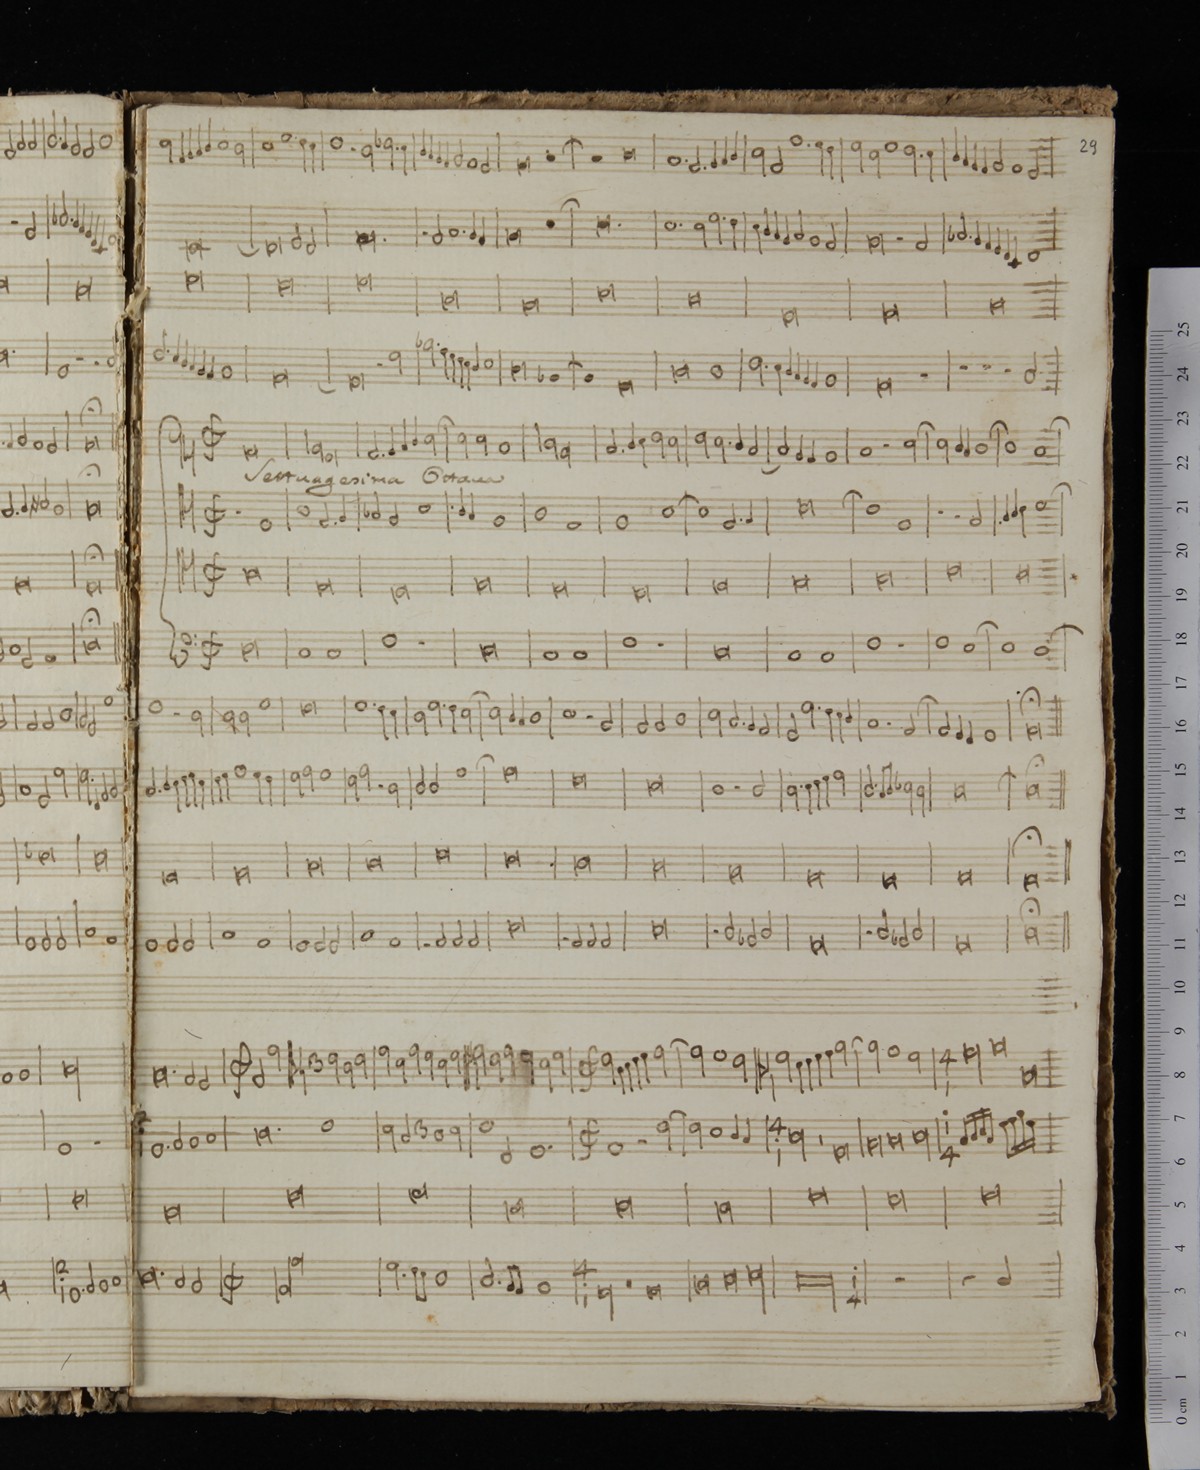 29
Settuagesima Octaua
25
24
23
22
21
20
19
18
17
16
15
14
13
12
11
10
9
8
7
6
5
4
3
2
1
0 cm